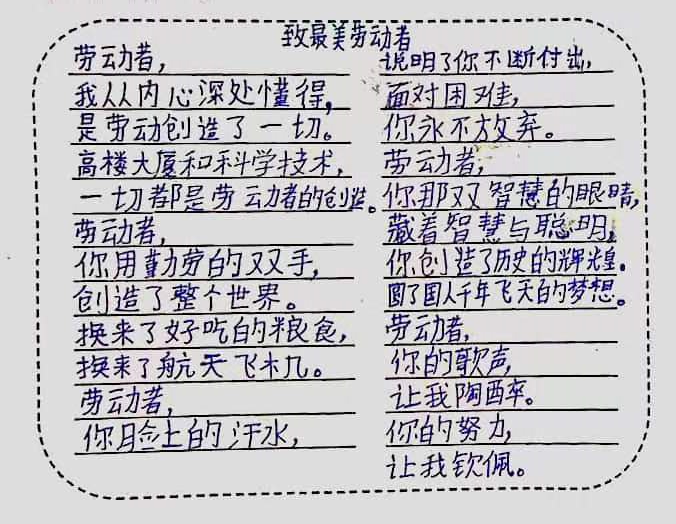 致最美劳动者
劳动者,
我从内心深处懂得,
是劳动创造了一切。
高楼大厦和科学技术,
一切都是劳动者的创造。
劳动者,
你用勤劳的双手,
创造了整个世界。
换来了好吃的粮食,
换来了航天飞机。
劳动者,
你脸上的汗水,
说明了你不断付出,
面对困难,
你永不放弃。
劳动者,
你那双智慧的眼睛,
藏着智慧与聪明,
你创造了历史的辉煌。
圆了国人千年飞天的梦想。
劳动者,
你的歌声,
让我陶醉。
你的努力,
让我钦佩。